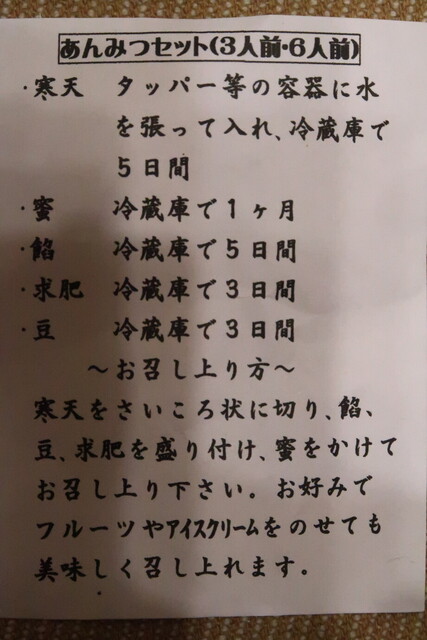 あんみつセット(3人前・6人前)
・寒天 タッパー等の容器に水
を張って入れ、冷蔵庫で
5日間
・蜜 冷蔵庫で1ヶ月
・餡 冷蔵庫で5日間
・求肥 冷蔵庫で3日間
・豆 冷蔵庫で3日間
～お召し上り方～
寒天をさいころ状に切り、餡、
豆、求肥を盛り付け、蜜をかけて
お召し上り下さい。お好みで
フルーツやアイスクリームをのせても
美味しく召し上れます。